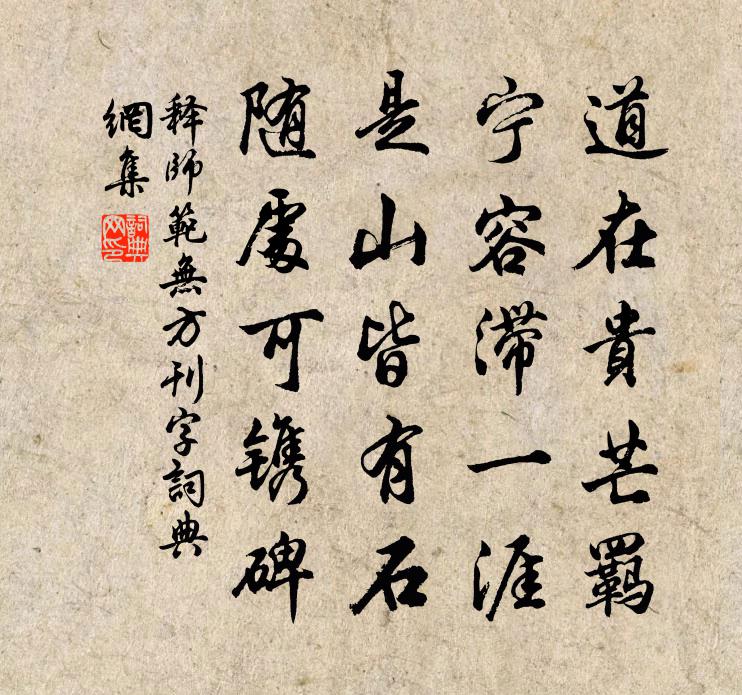 道在貴芒羈
宁容滞一涯
是山皆有石
随處可镌碑
释師範無方刊字詞典
網集
詞典
网印